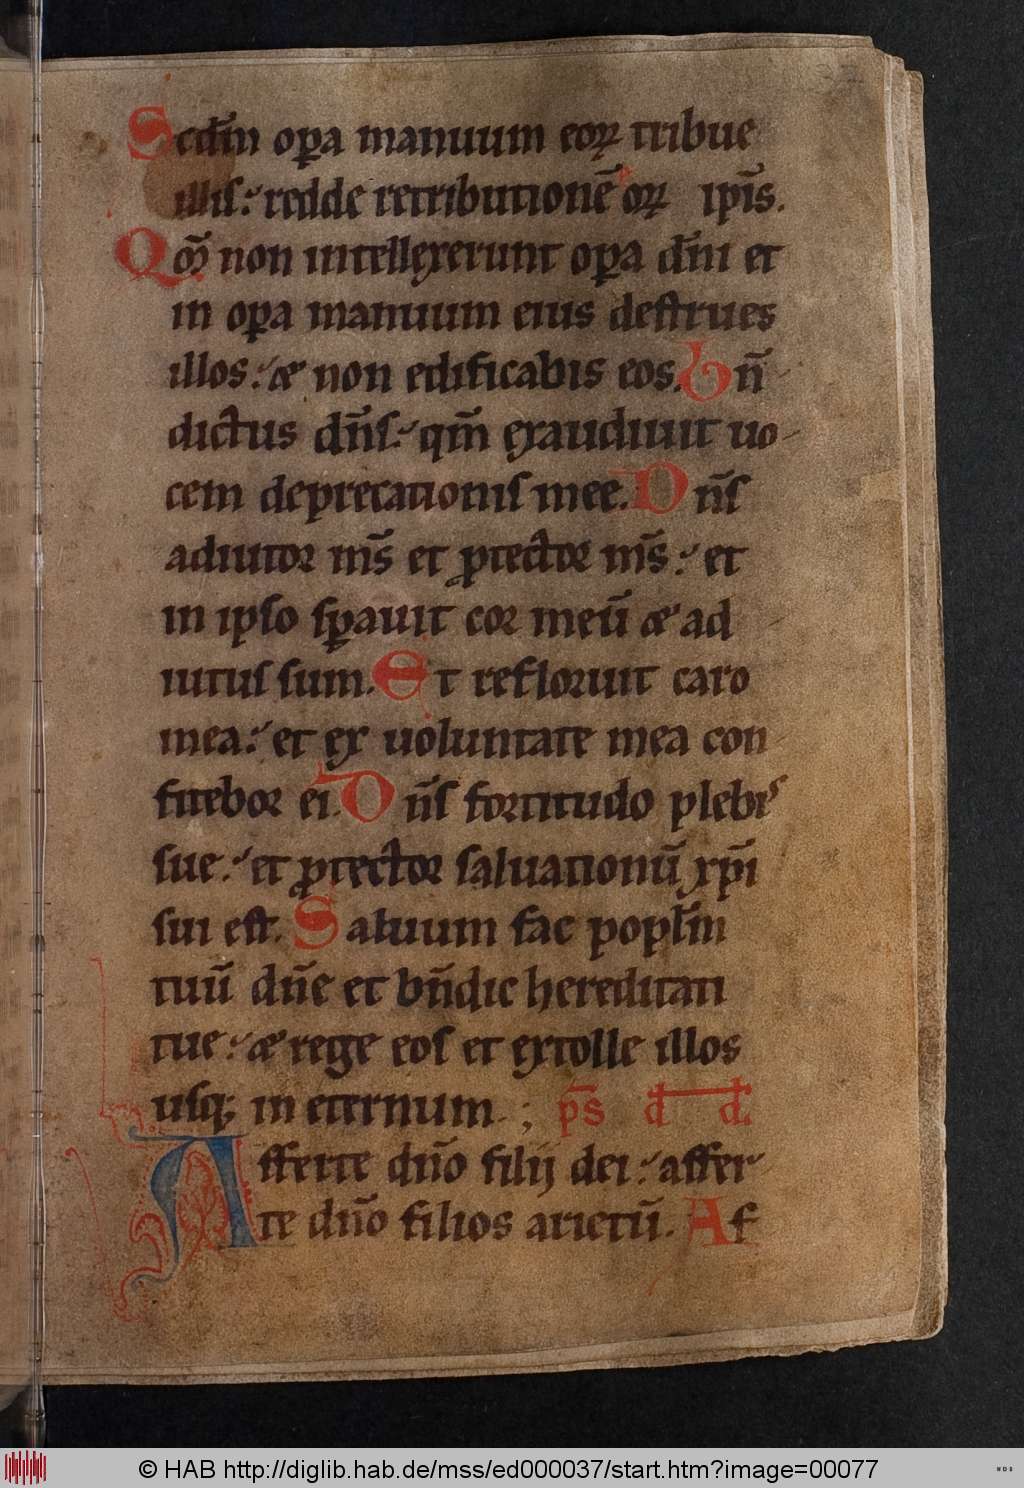 Scdm̄ oꝑa manuum eoꝝ tribue
illis: redde retributionē eoꝝ ipīs.
Qm̄ non intellexerunt oꝑa dn̄i et
in oꝑa manuum eius destrues
illos: & non edificabis eos. Bn̄
dictus dn̄s: qm̄ exaudiuit uo
cem deprecationis mee. Dn̄s
adiutor ms̄ et ꝓtector ms̄: et
in ipso sꝑauit cor meū & ad
iutus sum. Et refloruit caro
mea: et ex uoluntate mea con
fitebor ei. Dn̄s fortitudo plebis
sue: et ꝓtector saluationū xp̄i
sui est. Saluum fac popl̄m
tuū dn̄e et bn̄dic hereditati
tue: & rege eos et extolle illos
usq; in eternum; ps̄ d d.
Afferte dn̄o filij dei: affer
te dn̄o filios arietū. Af
© HAB http://diglib.hab.de/mss/ed000037/start.htm?image=00077